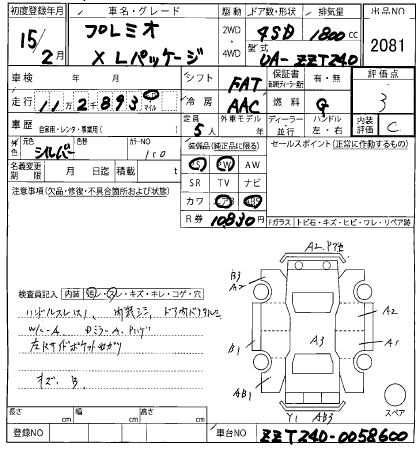 初度登録年月 車名・グレード 駆動 ドア数・形状 排気量 出品NO
15/2月 プレミオ 2WD・4WD 4SD 1800cc 2081
XLパッケージ 型式 UA-ZZT240
車検 年 月 シフト FAT 保証書 有・無 評価点
走行 11万2千893 マイル 冷房 AAC 燃料 G 3
車歴 自家用・レンタ・事業用( ) 定員 5人 外車モデル 年 ディーラー・並行 ハンドル 左・右 内装評価 C
外色 元色 シルバー 色替 カラーNO 1C0 装備品(純正品に限る) セールスポイント(正常に作動するもの)
名義変更期限 月 日迄 積載 t PS PW AW
SR TV ナビ
注意事項(欠品・修復・不具合箇所および状態) カワ エアB ABS
R券 10830円 Fガラス トビ石・キズ・ヒビ・ワレ・リペア跡
A2
B3
A2
A2
検査員記入 内装 汚レ・スレ・キズ・キレ・コゲ・穴
ハンドルスレ
A3
W/C-A
B1
A1
AB1
キズ B
Y1 AB3
スペア
長さ cm 幅 cm 高さ cm
登録NO 車台NO ZZT240-0058600